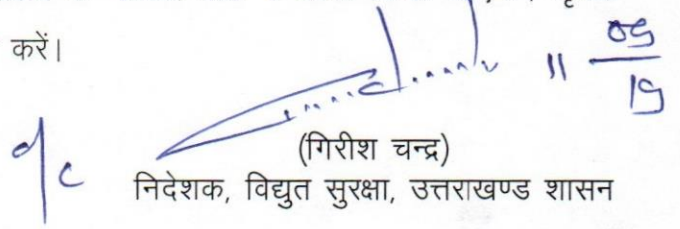 करें।
11 05/19
o/c
(गिरीश चन्द्र)
निदेशक, विद्युत सुरक्षा, उत्तराखण्ड शासन